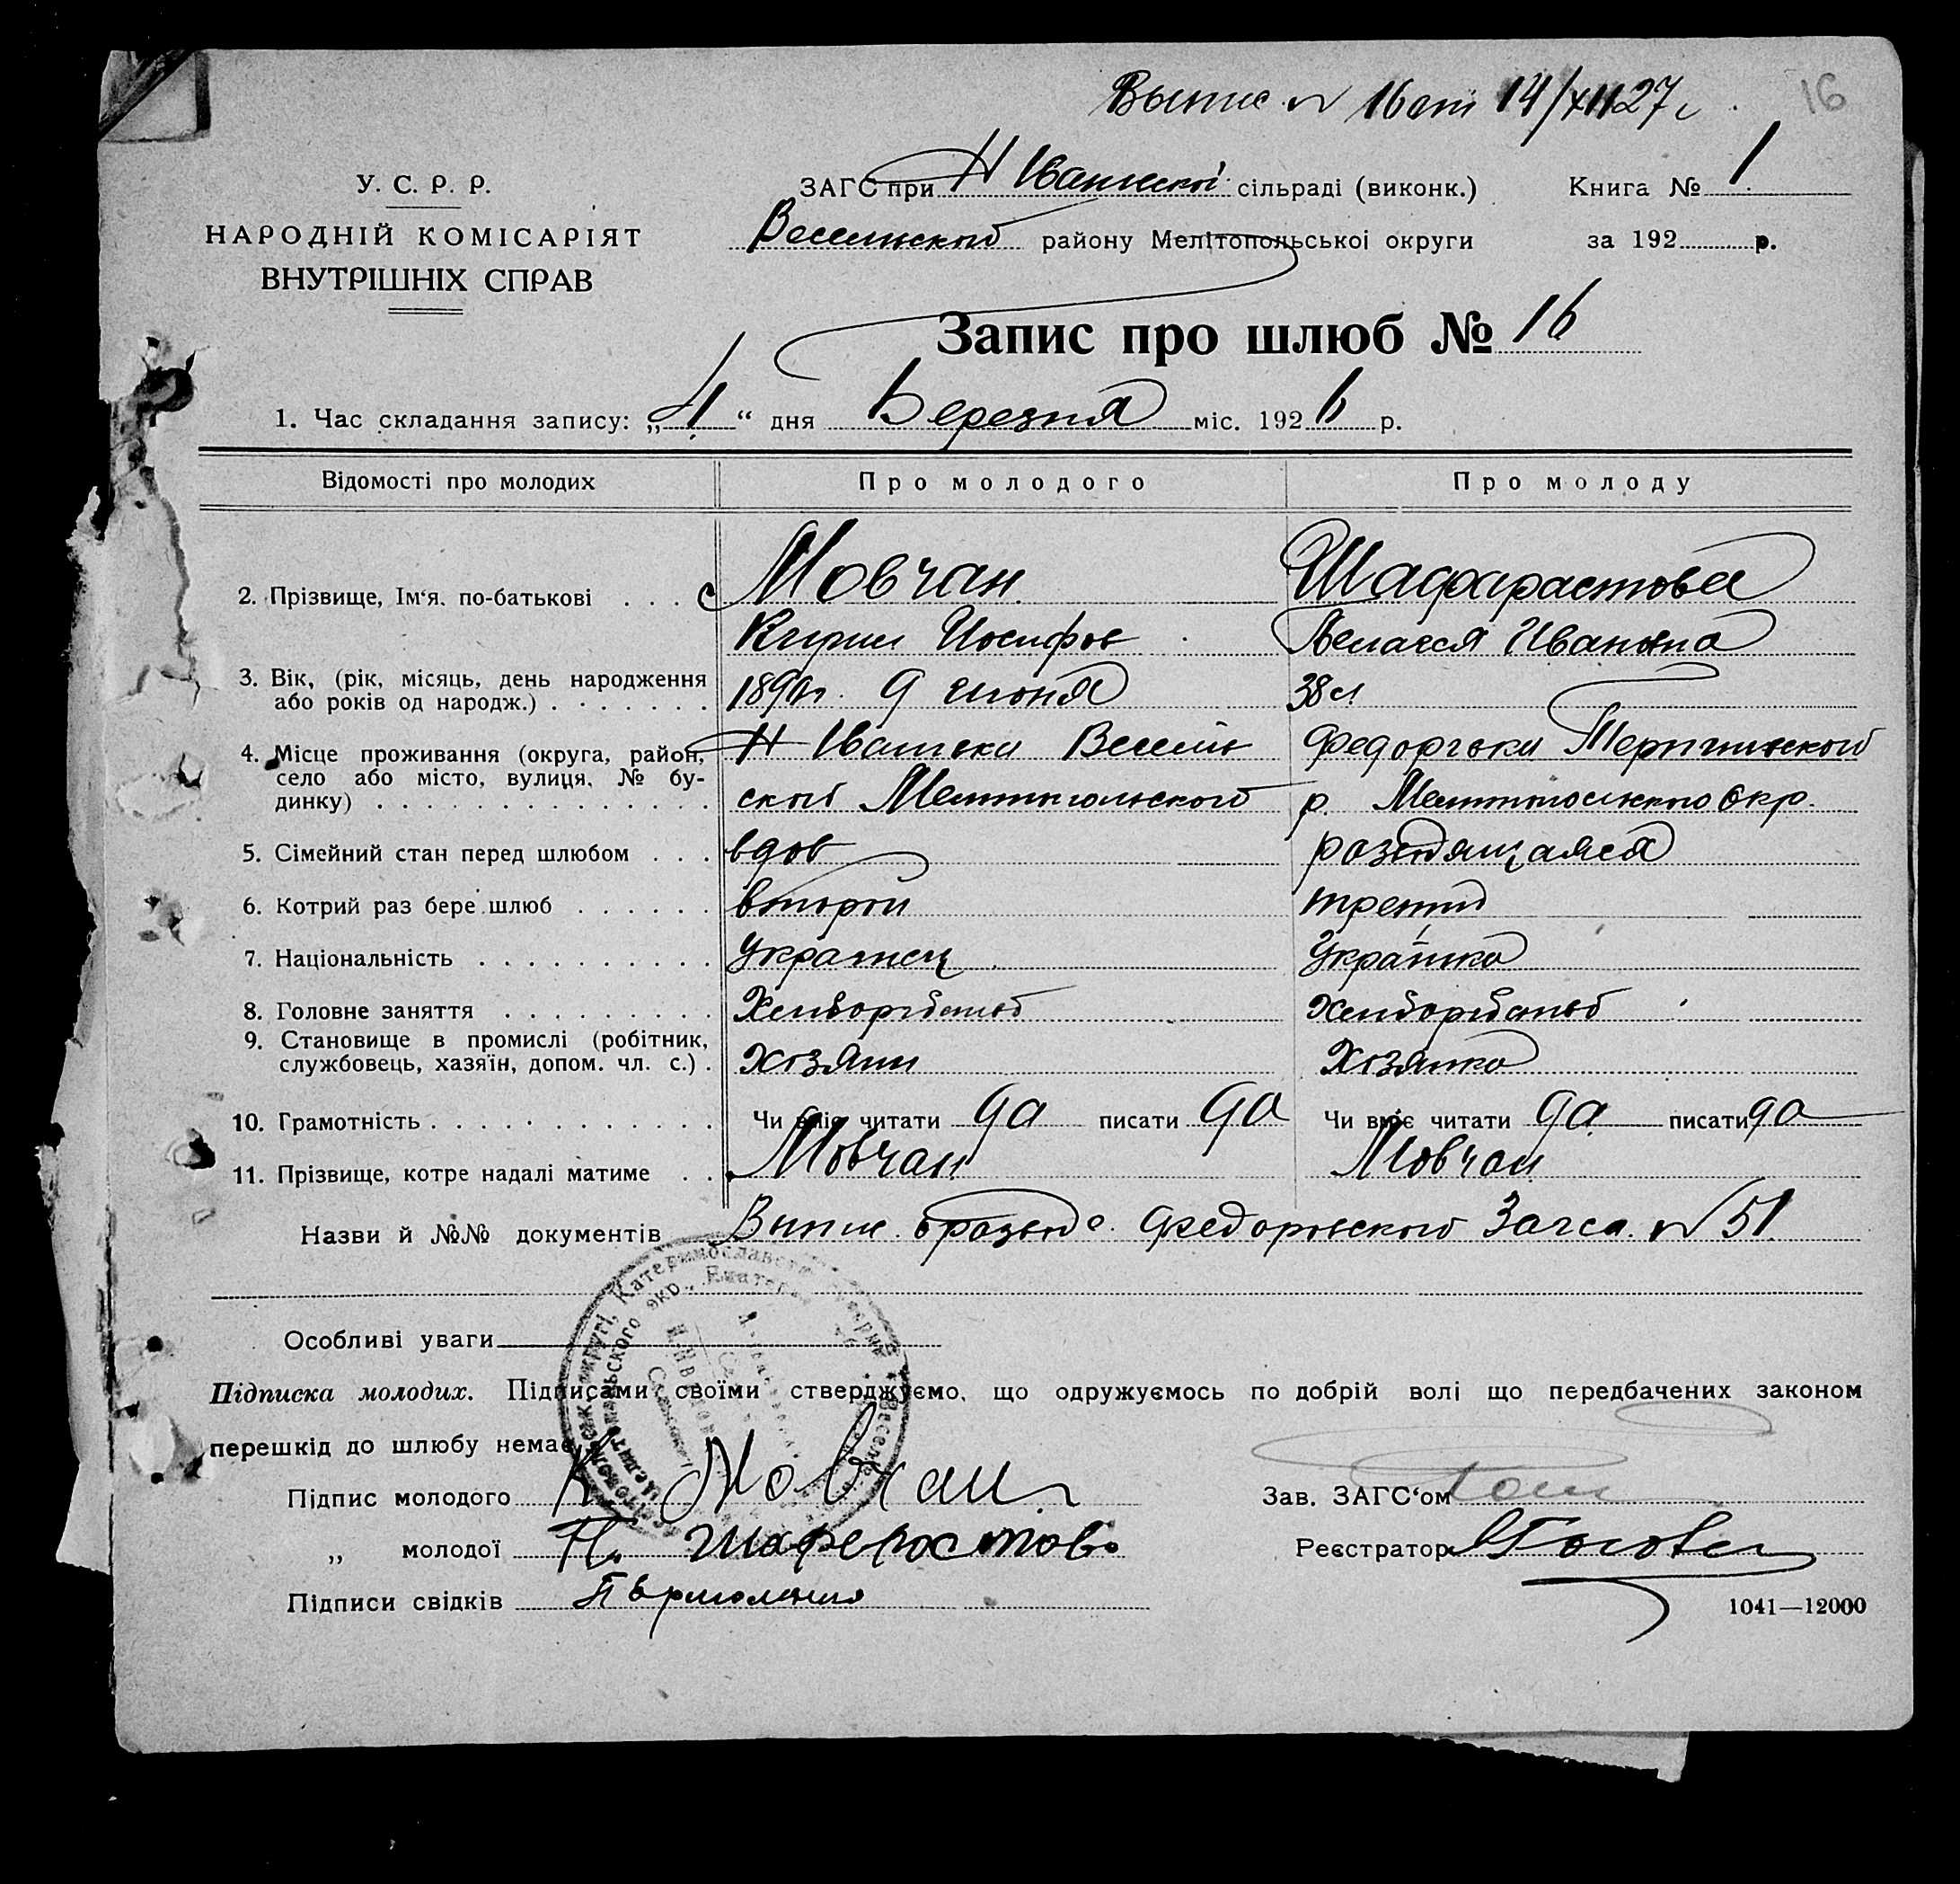 Выпис. № 16 от 14/XII 27 г.
16
У. С. Р. Р.
НАРОДНІЙ КОМІСАРІЯТ
ВНУТРІШНІХ СПРАВ
ЗАГС при Н Іванівскої сільраді (виконк.) Книга № 1
Веселинского району Мелітопольської округи за 192 р.
Запис про шлюб № 16
1. Час складання запису: „ 4 “ дня Березня міс. 1926 р.
Відомості про молодих Про молодого Про молоду
2. Прізвище, Ім‘я. по-батькові . . . Мовчан Шафарастова
Кирил Иосифов Пелагея Ивановна
3. Вік, (рік, місяць, день народження
або років од народж.) . . . . . . . 189 г. 9 июня 38 л
4. Місце проживання (округа, район, Н Ивановка Весель Федоровки Терпиньского
село або місто, вулиця, № бу-
динку) . . . . . . . . . . . . . . ский Мелитопольского р. Мелитопольского Окр.
5. Сімейний стан перед шлюбом . . . вдов
6. Котрий раз бере шлюб . . . . . . второй третий
7. Національність . . . . . . . . . . Украинец Украінка
8. Головне заняття . . . . . . . . . Хлиборобство Хлиборобство
9. Становище в промислі (робітник,
службовець, хазяїн, допом. чл. с.) . Хозяин Хозяйка
10. Грамотність . . . . . . . . . . . . Чи вміє читати да писати да Чи вміє читати да писати да
11. Прізвище, котре надалі матиме . . Мовчан Мовчан
Назви й №№ документів Выпис. о разводе Федоровского Загса. № 51
Особливі уваги
Підписка молодих. Підписами своїми стверджуємо, що одружуємось по добрій волі що передбачених законом
перешкід до шлюбу немає
Підпис молодого К Мовчан Зав. ЗАГС‘ом
„ молодої П. Шаферостова Реєстратор
Підписи свідків
1041—12000